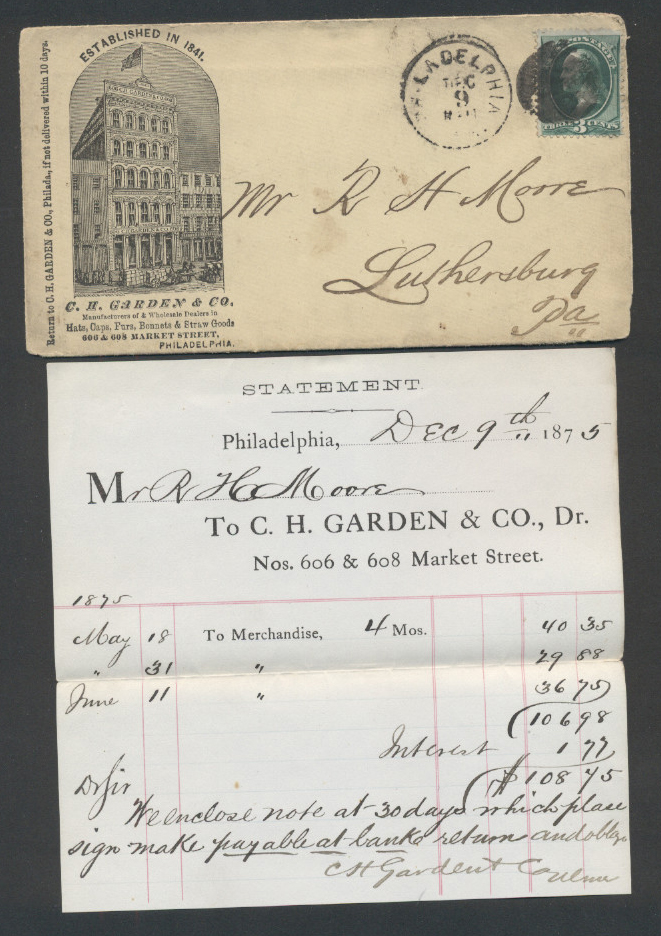 ESTABLISHED IN 1841.
Return to C. H. GARDEN & CO., Philada., if not delivered within 10 days.
C. H. GARDEN & CO.
Manufacturers of & Wholesale Dealers in
Hats, Caps, Furs, Bonnets & Straw Goods
606 & 608 MARKET STREET,
PHILADELPHIA.
PHILADELPHIA
DEC
9
THREE 3 CENTS
Mr R H Moore
Luthersburg
Pa
STATEMENT
Philadelphia, Dec 9th 1875
Mr R H Moore
To C. H. GARDEN & CO., Dr.
Nos. 606 & 608 Market Street.
1875
May 18 To Merchandise, 4 Mos. 40 35
" 31 " 29 88
June 11 " 36 75
106 98
Interest 1 77
$108 75
Dr Sir
We enclose note at 30 days which please
sign make payable at bank & return and oblige
C H Garden & Co